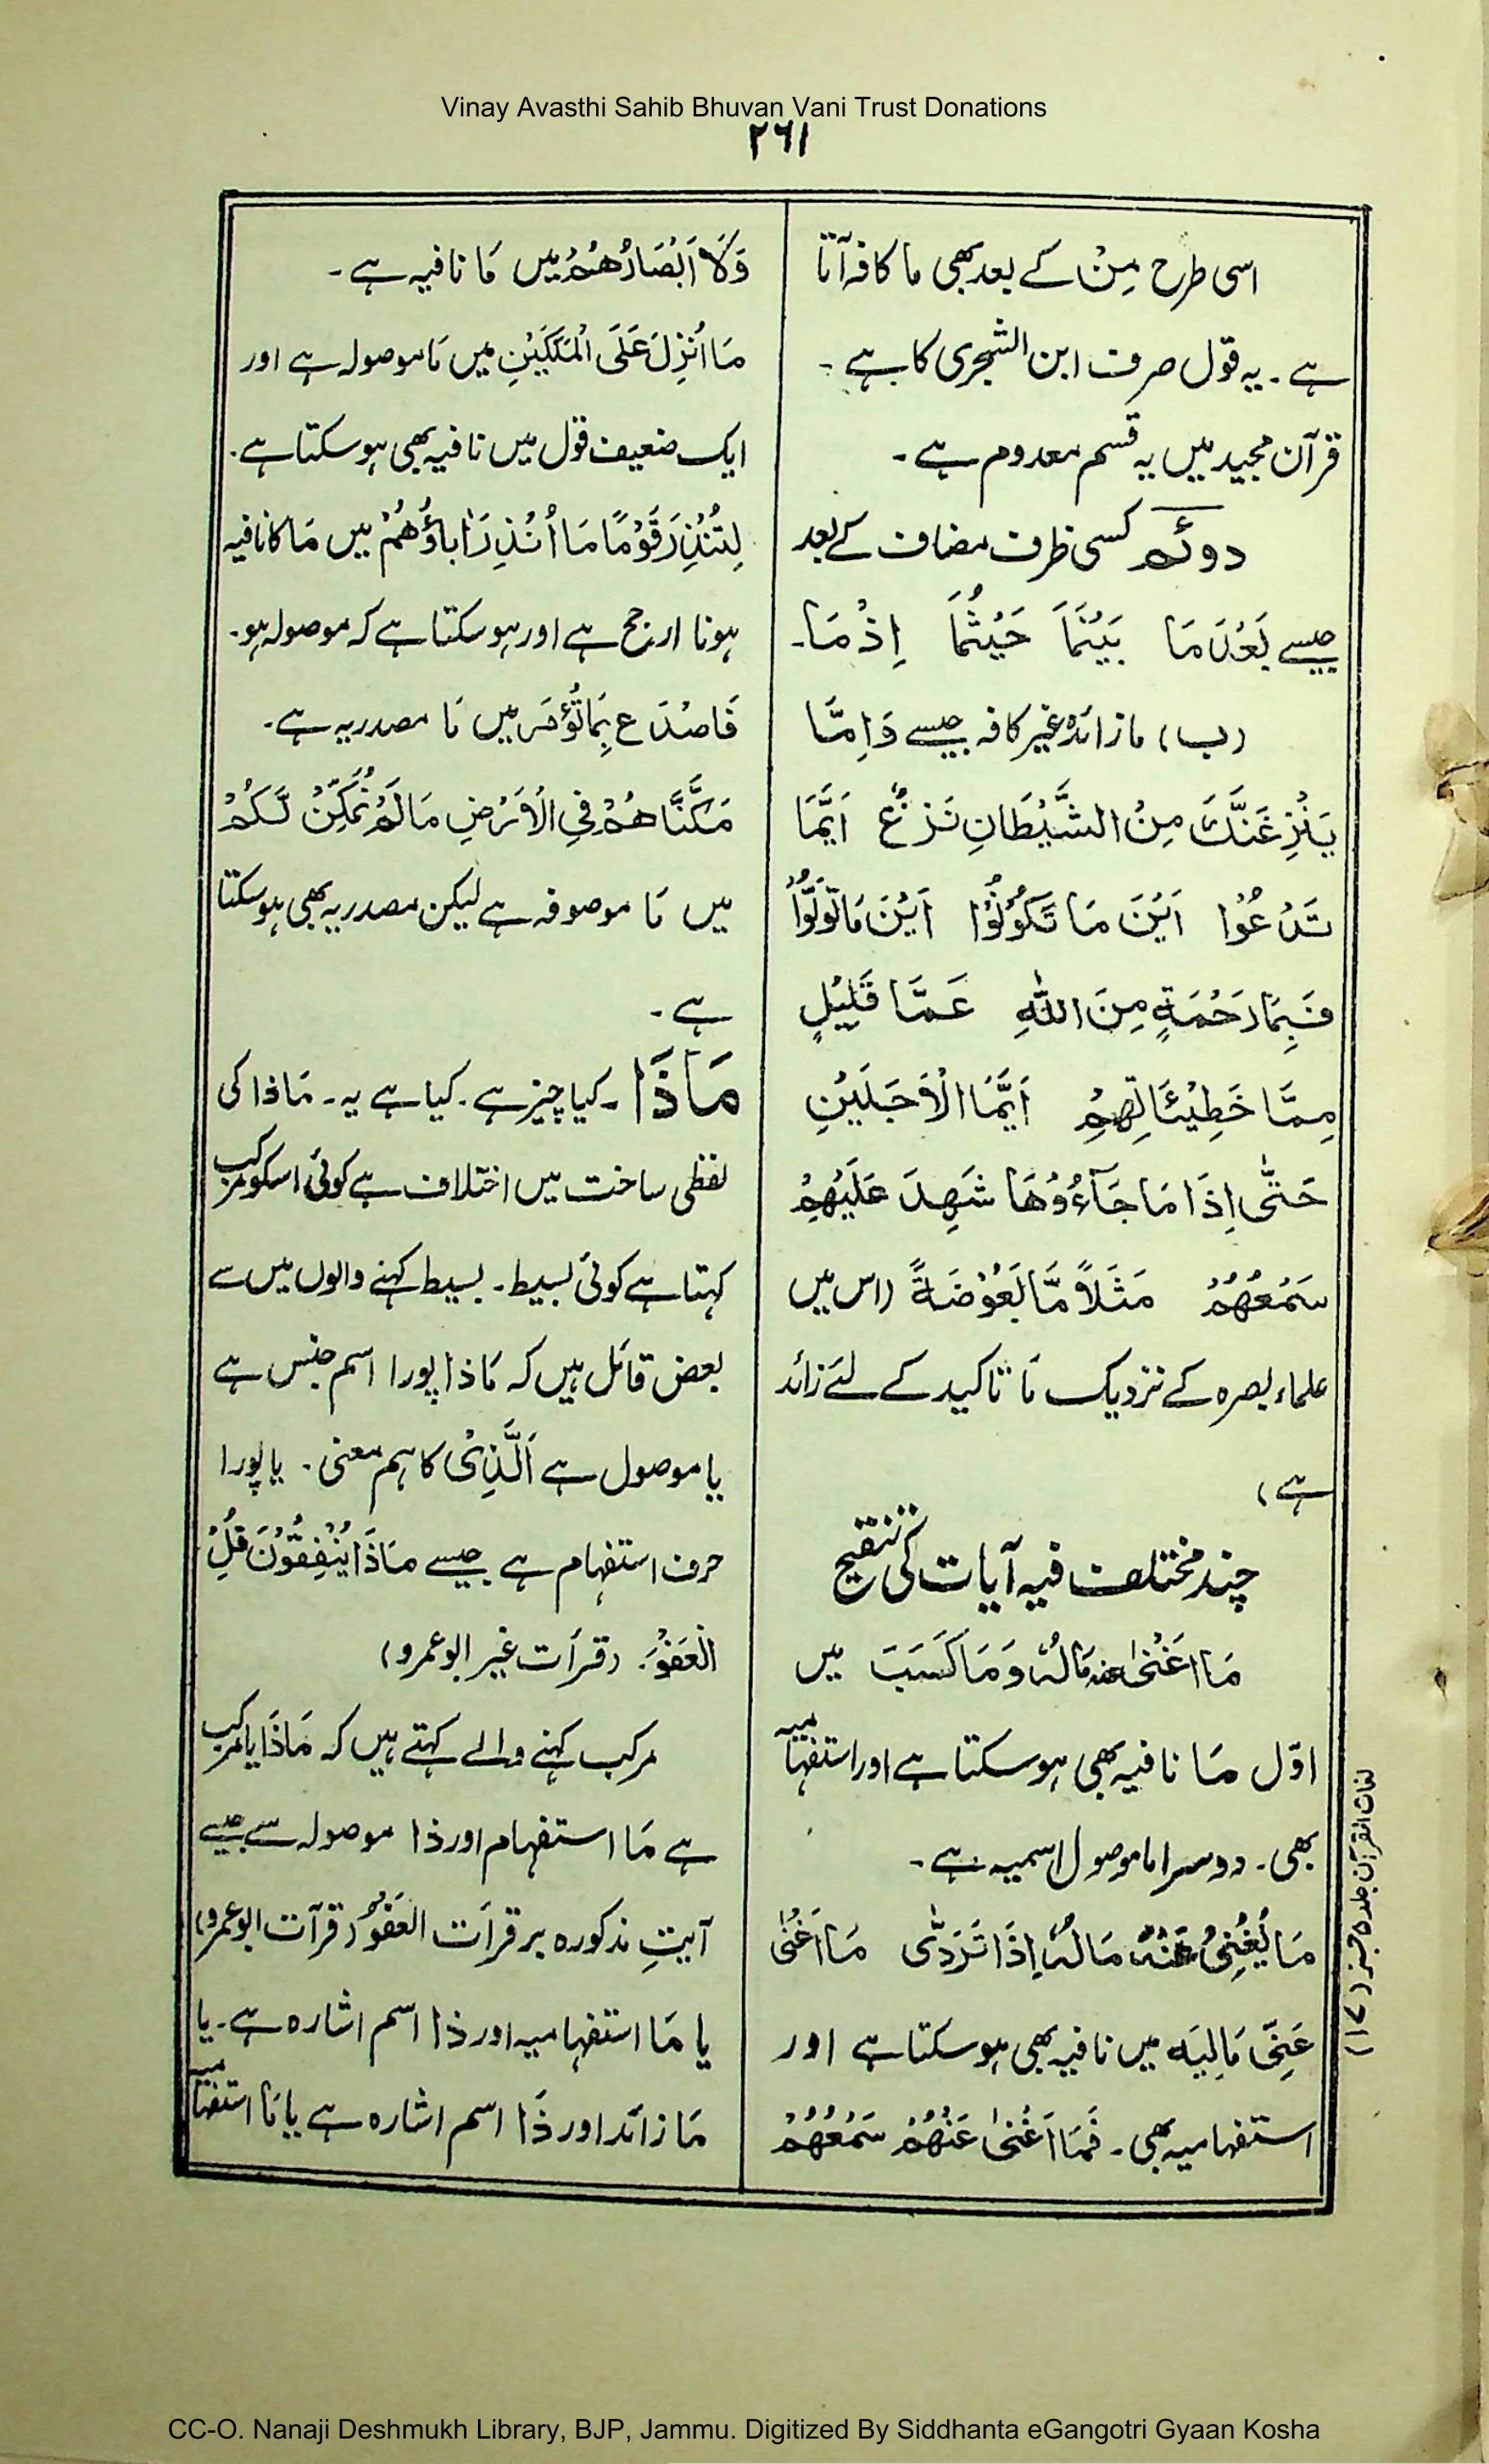 Vinay Avasthi Sahib Bhuvan Vani Trust Donations
۲۶۱
اسی طرح مِنْ کے بعد بھی ما کافہ آتا
ہے۔ یہ قول صرف ابن الشجری کا ہے۔
قرآن مجید میں یہ قسم معدوم ہے۔
دوئم کسی ظرف مضاف کے بعد
جیسے بَعْدَمَا بَيْنَمَا حَيْثُمَا اِذْمَا۔
(ب) ما زائدہ غیر کافہ جیسے وَاِمَّا
يَنْزِغَنَّكَ مِنَ الشَّيْطَانِ نَزْغٌ اَيَّمَا
تَدْعُوْا اَيْنَ مَا تَكُوْنُوْا اَيْنَ مَا تُوَلُّوْا
فَبِمَا رَحْمَةٍ مِنَ اللّٰهِ عَمَّا قَلِيْلٍ
مِمَّا خَطِيْئَاتِهِمْ اَيَّمَا الْاَجَلَيْنِ
حَتّٰى اِذَا مَا جَآءُوْهَا شَهِدَ عَلَيْهِمْ
سَمْعُهُمْ مَثَلًا مَّا بَعُوْضَةً (اس میں
علماء بصرہ کے نزدیک مَا تاکید کے لئے زائد
ہے)
چند مختلف فیہ آیات کی تنقیح
مَا اَغْنٰى عنه مَالُهٗ وَمَا كَسَبَ میں
اوّل مَا نافیہ بھی ہو سکتا ہے اور استفہامیہ
بھی۔ دوسرا ما موصول اسمیہ ہے۔
مَا يُغْنِىْ عَنْهُ مَالُهٗ اِذَا تَرَدّٰى مَا اَغْنٰى
عَنِّىْ مَالِيَه میں نافیہ بھی ہو سکتا ہے اور
استفہامیہ بھی۔ فَمَا اَغْنٰى عَنْهُمْ سَمْعُهُمْ
وَلَا اَبْصَارُهُمْ میں مَا نافیہ ہے۔
مَا اُنْزِلَ عَلَى الْمَلَكَيْنِ میں مَا موصولہ ہے اور
ایک ضعیف قول میں نافیہ بھی ہو سکتا ہے۔
لِتُنْذِرَ قَوْمًا مَا اُنْذِرَ اٰبَاؤُهُمْ میں مَا کا نافیہ
ہونا ارجح ہے اور ہو سکتا ہے کہ موصولہ ہو۔
فَاصْدَعْ بِمَا تُؤْمَرُ میں مَا مصدریہ ہے۔
مَكَّنَّاهُمْ فِى الْاَرْضِ مَا لَمْ نُمَكِّنْ لَّكُمْ
میں مَا موصوفہ ہے لیکن مصدریہ بھی ہو سکتا
ہے۔
مَاذَا۔ کیا چیز ہے۔ کیا ہے یہ۔ مَاذا کی
لفظی ساخت میں اختلاف ہے کوئی اسکو مرکب
کہتا ہے کوئی بسیط۔ بسیط کہنے والوں میں سے
بعض قائل ہیں کہ مَاذا پورا اسم جنس ہے
یا موصول ہے اَلَّذِىْ کا ہم معنی۔ یا پورا
حرف استفہام ہے جیسے مَاذَا يُنْفِقُوْنَ قُلِ
الْعَفْوَ۔ (قرأت غیر ابو عمرو)
مرکب کہنے والے کہتے ہیں کہ مَاذَا یا مرکب
ہے مَا استفہام اور ذا موصولہ سے جیسے
آیتِ مذکورہ بر قرأت العَفْوُ (قرآت ابو عمرو)
یا مَا استفہامیہ اور ذا اسم اشارہ ہے۔ یا
مَا زائد اور ذَا اسم اشارہ ہے یا مَا استفہامیہ
لغات القرآن جلد ۵ جز (۱۷)
CC-O. Nanaji Deshmukh Library, BJP, Jammu. Digitized By Siddhanta eGangotri Gyaan Kosha